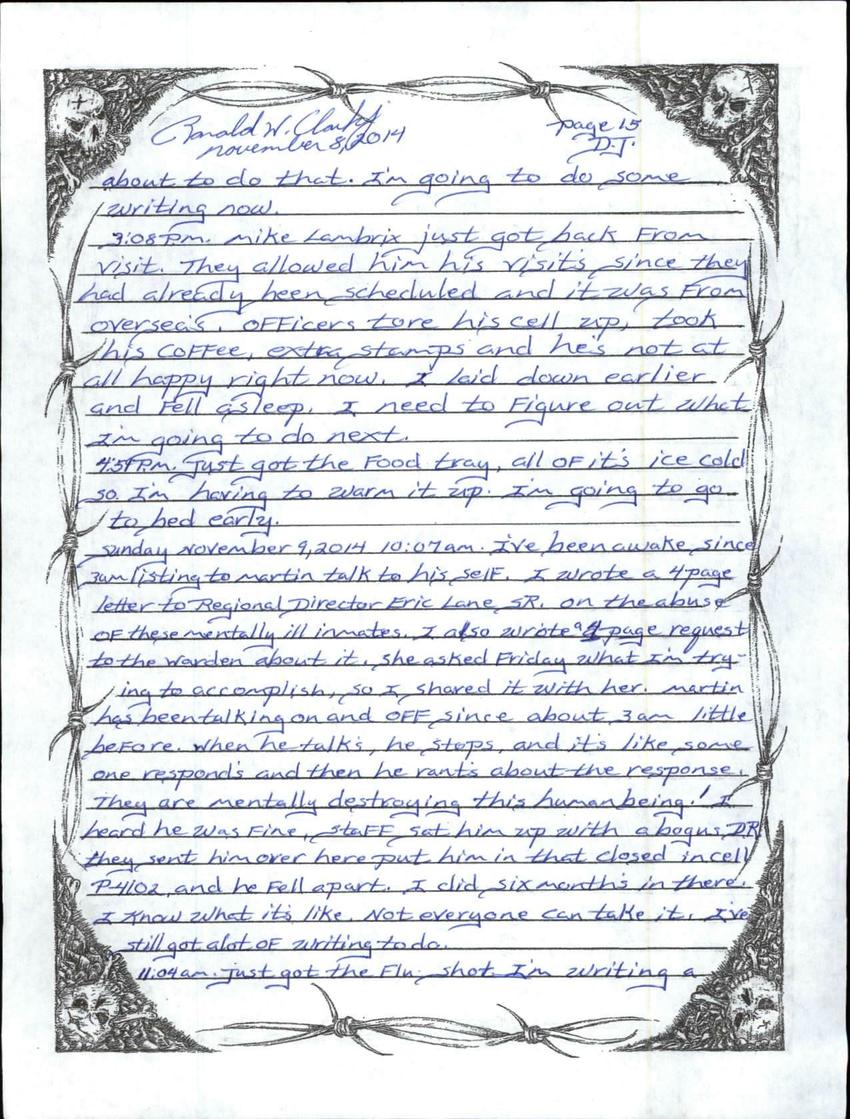 Ronald W. Clark Jr
November 8, 2014
page 15
D.J.
about to do that. I'm going to do some
writing now.
3:08 Pm. Mike Lambrix just got back From
visit. They allowed him his visit's since they
had already been scheduled and it was From
oversea's. OFFicers tore his cell up, took
his coFFee, extra stamps and he's not at
all happy right now. I laid down earlier
and Fell asleep. I need to Figure out what
I'm going to do next.
4:54 Pm. Just got the Food tray, all oF it's ice cold
so I'm having to warm it up. I'm going to go
to bed early.
Sunday November 9, 2014 10:07am. I've been awake since
3am listing to martin talk to his selF. I wrote a 4 page
letter to Regional Director Eric Lane, SR. on the abuse
oF these mentally ill inmates. I also wrote a 4 page request
to the warden about it, she asked Friday what I'm try-
ing to accomplish, so I shared it with her. martin
has been talking on and oFF since about 3am little
beFore. When he talk's, he stops, and it's like some
one respond's and then he rant's about the response.
They are mentally destroying this human being! I
heard he was Fine, staFF set him up with a bogus DR
they sent him over here put him in that closed in cell
P-4102, and he Fell apart. I did six month's in there.
I Know what it's like. Not everyone can take it. I've
still got alot oF writing to do.
11:04am. just got the Flu shot I'm writing a